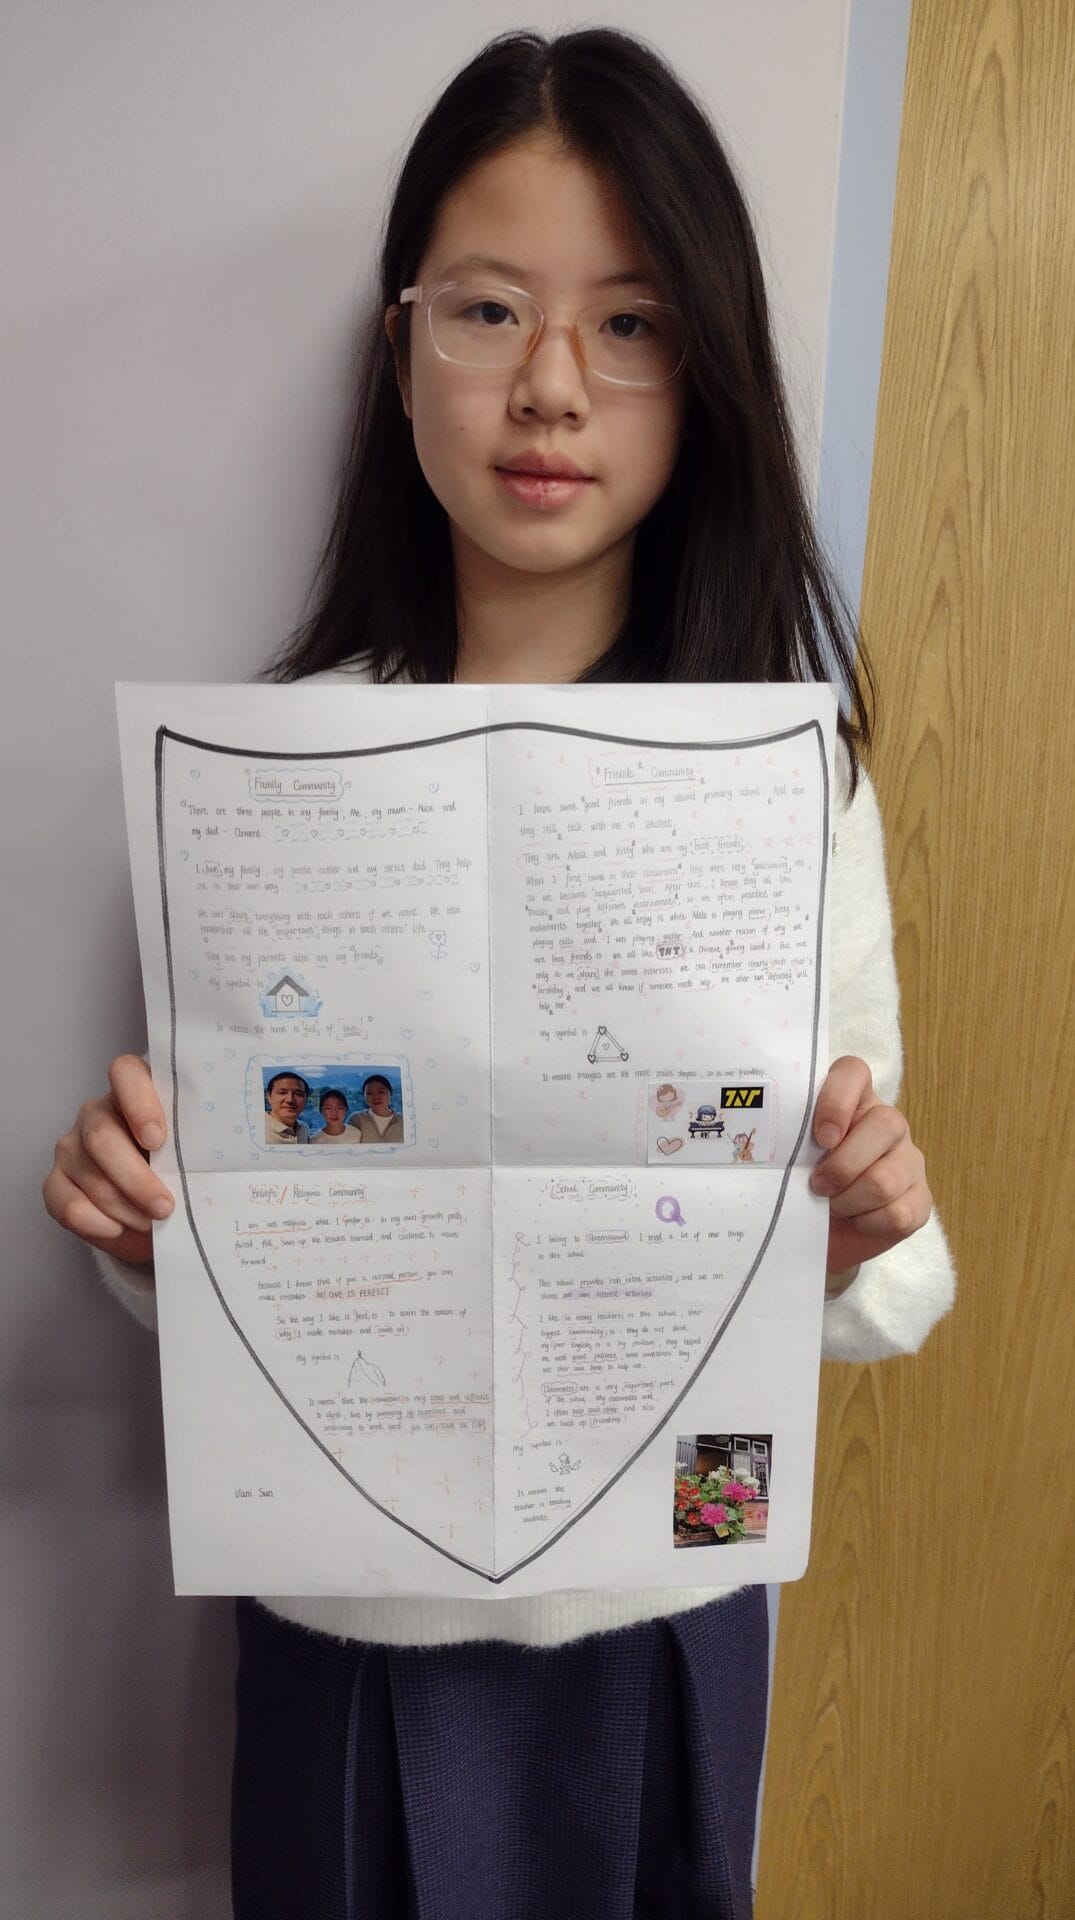 Family Community
There are three people in my family, Me, my mum - Alice and
my dad - Clement.
I love my family, my gentle mother and my strict dad. They help
me in their own way.
We can share everything with each others if we want. We also
remember all the important things in each others' life
They are my parents also are my friends.
My symbol is
It means the home is full of love.
Friends Community
I have some good friends in my second primary school. And also
they still talk with me in Wechat.
They are Adela and Kitty who are my best friends.
When I first came in their classroom, they were very welcoming me,
so we became acquainted soon. After that, I knew they all like
music and play different instruments, so we often practice our
instruments together. We all enjoy it while Adela is playing piano, Kitty is
playing cello and I am playing guitar. And another reason of why we
are best friends is we all like TNT (a Chinese young band). But not
only do we share the same interests, we can remember clearly each other's
birthday, and we all know if someone needs help, the other two definitely will
help her.
My symbol is
It means triangles are the most stable shapes, so is our friendship.
TNT
Beliefs / Religious Community
I am not religious, what I prefer is: in my own growth path,
failed, fell, sum up the lessons learned, and continue to move
forward.
Because I know that if you a normal person, you can
make mistakes. NO ONE IS PERFECT
So the way I like it best is to learn the reason of
why I made mistakes and move on
My symbol is
It means that the mountain is very steep and difficult
to climb, but by summing up experience and
continuing to work hard, you can reach the TOP
Vani Sun
School Community
Q
I belong to Queenswood. I tried a lot of new things
in this school.
This school provides rich extra activities, and we can
chose our own interest activities.
I like so many teachers in this school, their
biggest commonality is: they do not think
my poor English is a big problem, they helped
me with great patience, even sometimes they
use their own time to help me.
Classmates are a very important part
of the school. My classmates and
I often help each other and also
we build up friendship
My symbol is
It means the
teacher is teaching
students.